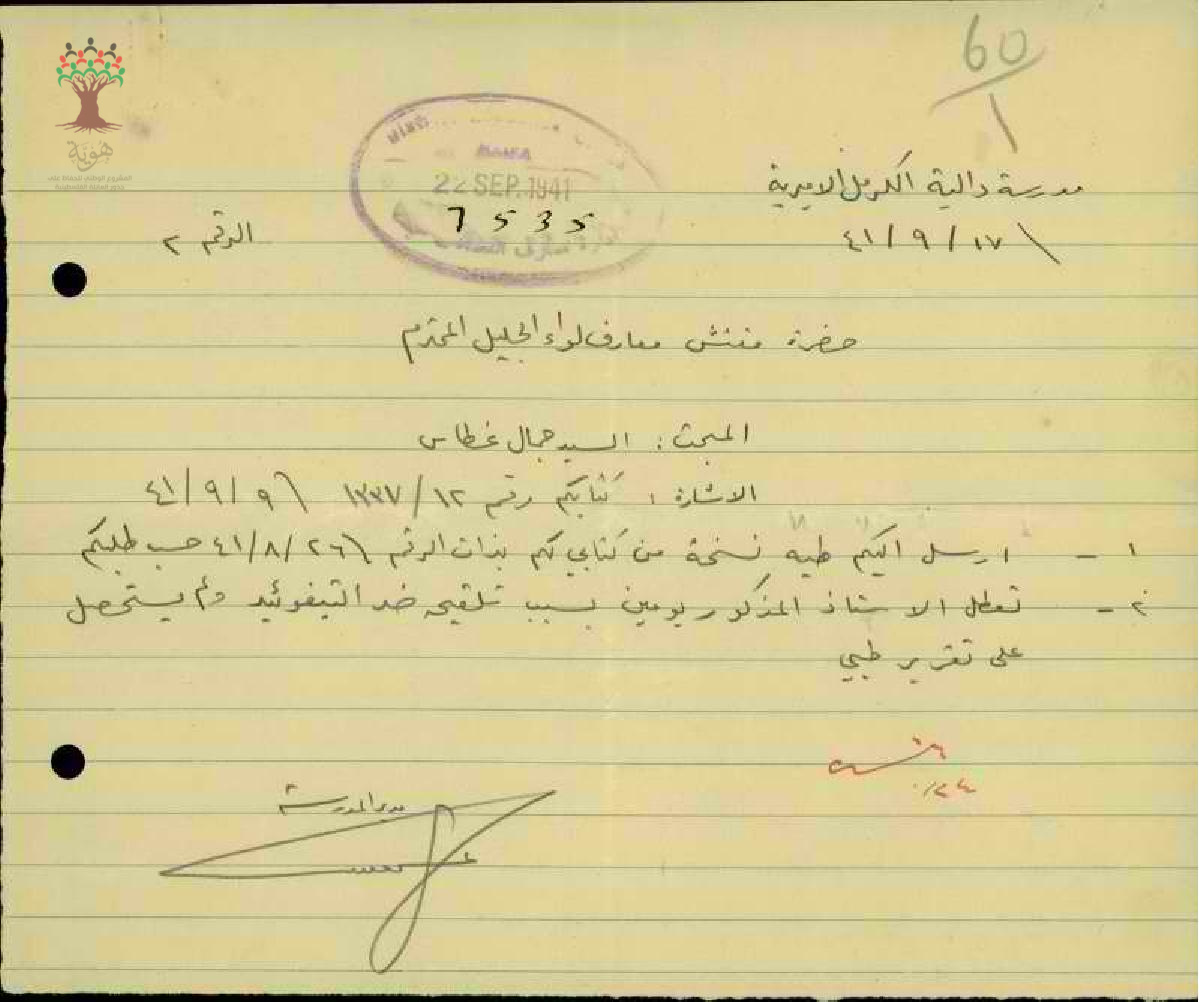 60
1
هوية
المشروع الوطني للحفاظ على
جذور العائلة الفلسطينية
HAIFA
22 SEP. 1941
7535
مدرسة دالية الكرمل الاميرية
٤١/٩/١٧
الرقم ٢
حضرة مفتش معارف لواء الجليل المحترم
المبحث: السيد جمال غطاس
الاشارة: كتابكم رقم ١٣٣٧/١٢ \ ٤١/٩/٩
١ - ارسل اليكم طيه نسخة من كتابي لكم بذات الرقم \ ٤١/٨/٢٦ حسب طلبكم
٢ - تعطل الاستاذ المذكور يومين بسبب تلقيحه ضد التيفوئيد ولم يستحصل
على تقرير طبي
مدير المدرسة